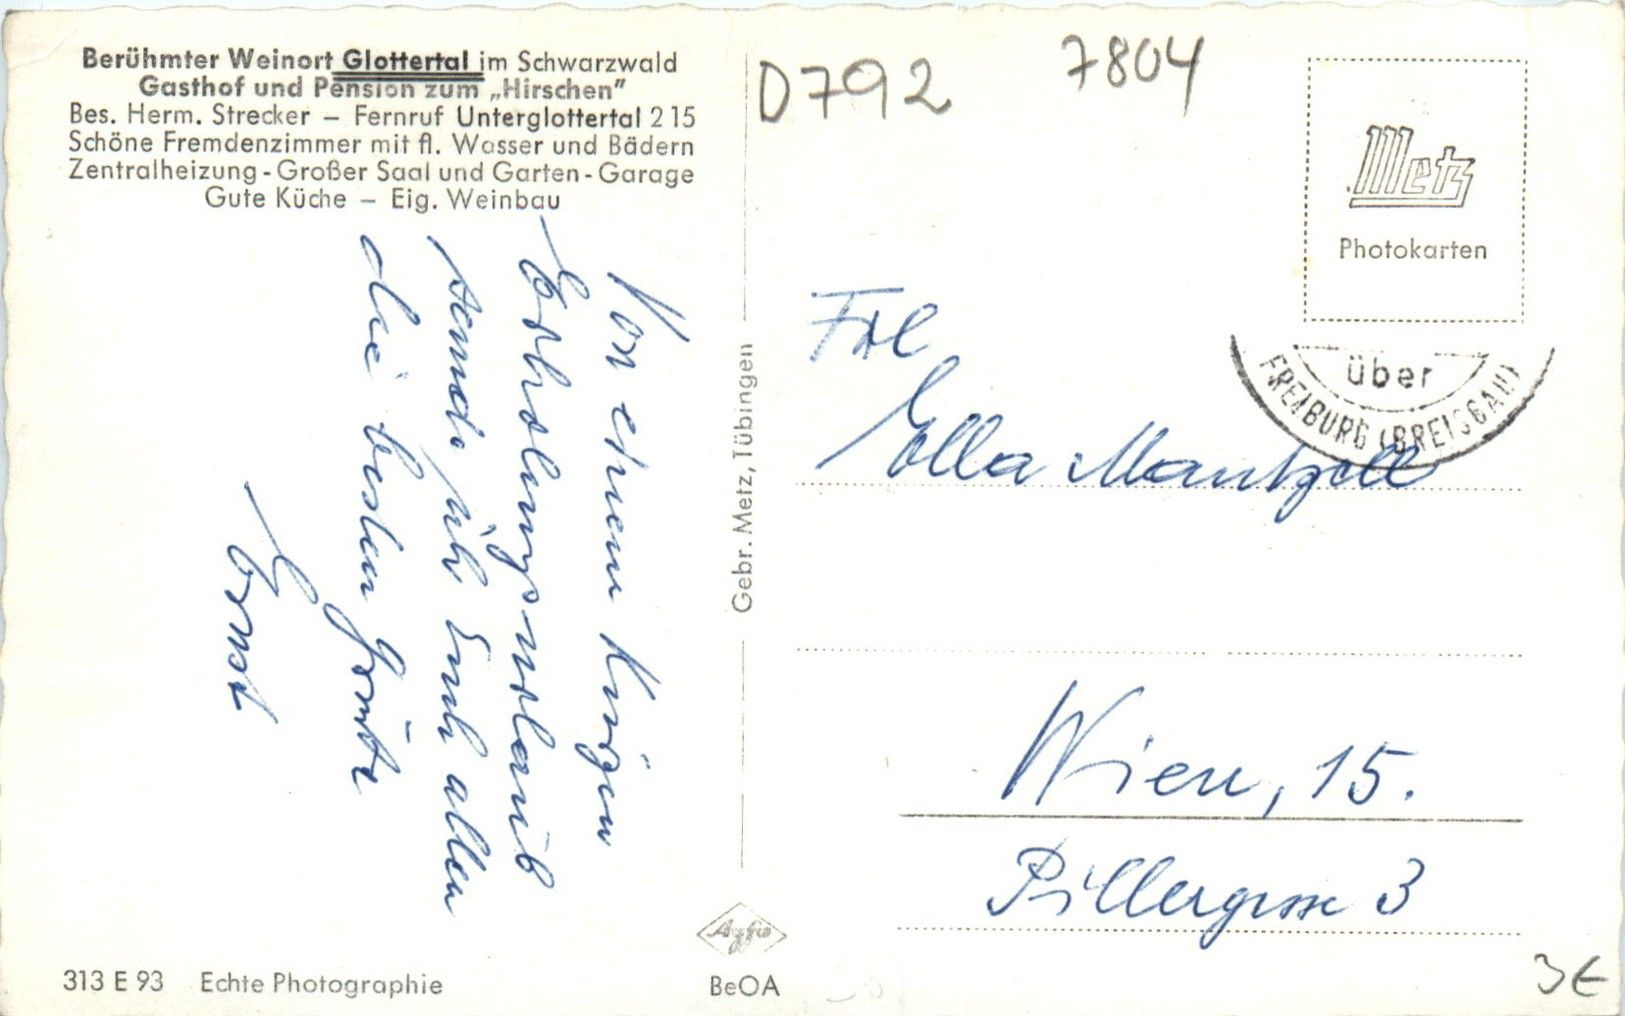 Berühmter Weinort Glottertal im Schwarzwald
Gasthof und Pension zum „Hirschen"
Bes. Herm. Strecker – Fernruf Unterglottertal 215
Schöne Fremdenzimmer mit fl. Wasser und Bädern
Zentralheizung - Großer Saal und Garten - Garage
Gute Küche – Eig. Weinbau
Von einem kurzen
Erholungsurlaub
sende ich Euch allen
die besten Grüße
Ernst
313 E 93 Echte Photographie
Gebr. Metz, Tübingen
Agfa
BeOA
D792
7804
Metz
Photokarten
über
FREIBURG (BREISGAU)
Frl
Ella Mantzell
Wien, 15.
Pillergasse 3
3€